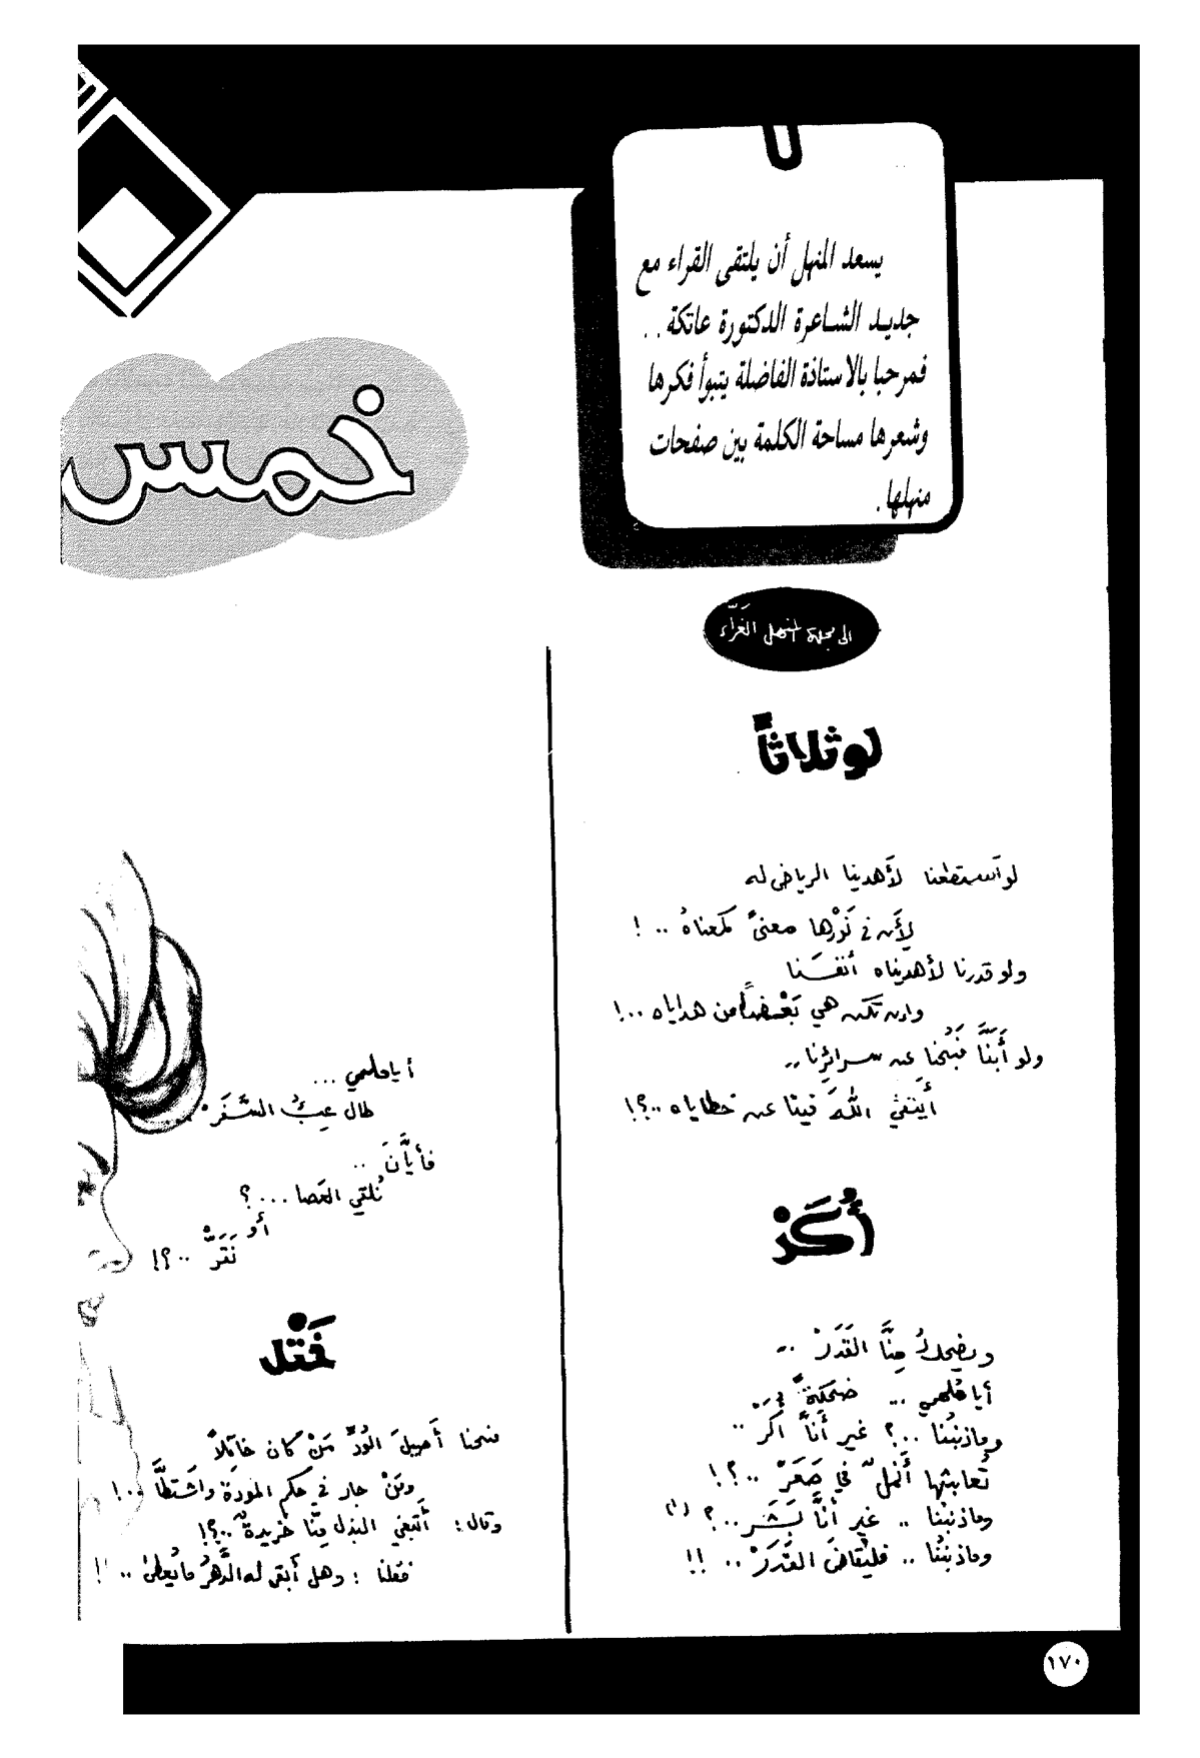 يسعد المنهل أن يلتقى القراء مع
جديد الشاعرة الدكتورة عاتكة ..
فمرحبا بالاستاذة الفاضلة يتبوأ فكرها
وشعرها مساحة الكلمة بين صفحات
منهلها .
خمس
الى مجلة المنهل الغَرَّاء
لو ثلاثاً
لو آستطعنا لأهدينا الرياض له
لأن في نَوْرها معنىً كمعناهُ .. !
ولو قدرنا لأهديناه أنفسَنا
وان تكن هي بَعْضاً من هداياه ..!
ولو أَبَنَّا فبُحنا عن سرائِرِنا ..
أيَنَفيْ اللهَ فينا عن خطاياه ..؟!
أُكَرْ
ويضحكُ مِنَّا القَدَرْ ..
أيا قلمي .. ضحكةً
وماذنبُنا ..؟ غير أنَّا أُكَرْ ..
تُعابثها أَنملٌ في صَعَرْ ..؟!
وماذنبُنا .. غير أنَّا بَشَر ..؟ (١)
وماذنبُنا .. فليُقاضَ القَدَرْ .. !!
أيا قلمي ...
طال عِبءُ السَّفَرْ
فأيَّانَ ..
نُلقي العَصا ...؟
أو
نَقَرُّ ..؟!
خَتْل
منحنا أصيلَ الوُدِّ مَنْ كان خاتلاً
ومَنْ جار في حكم المودَةِ وآشتطَّا ..!
وقال : أتبغي البذل مِنّا خريدةٌ ..؟!
فقلنا : وهل أبقى له الدَّهرُ مايُعطىْ .. !
١٧٠